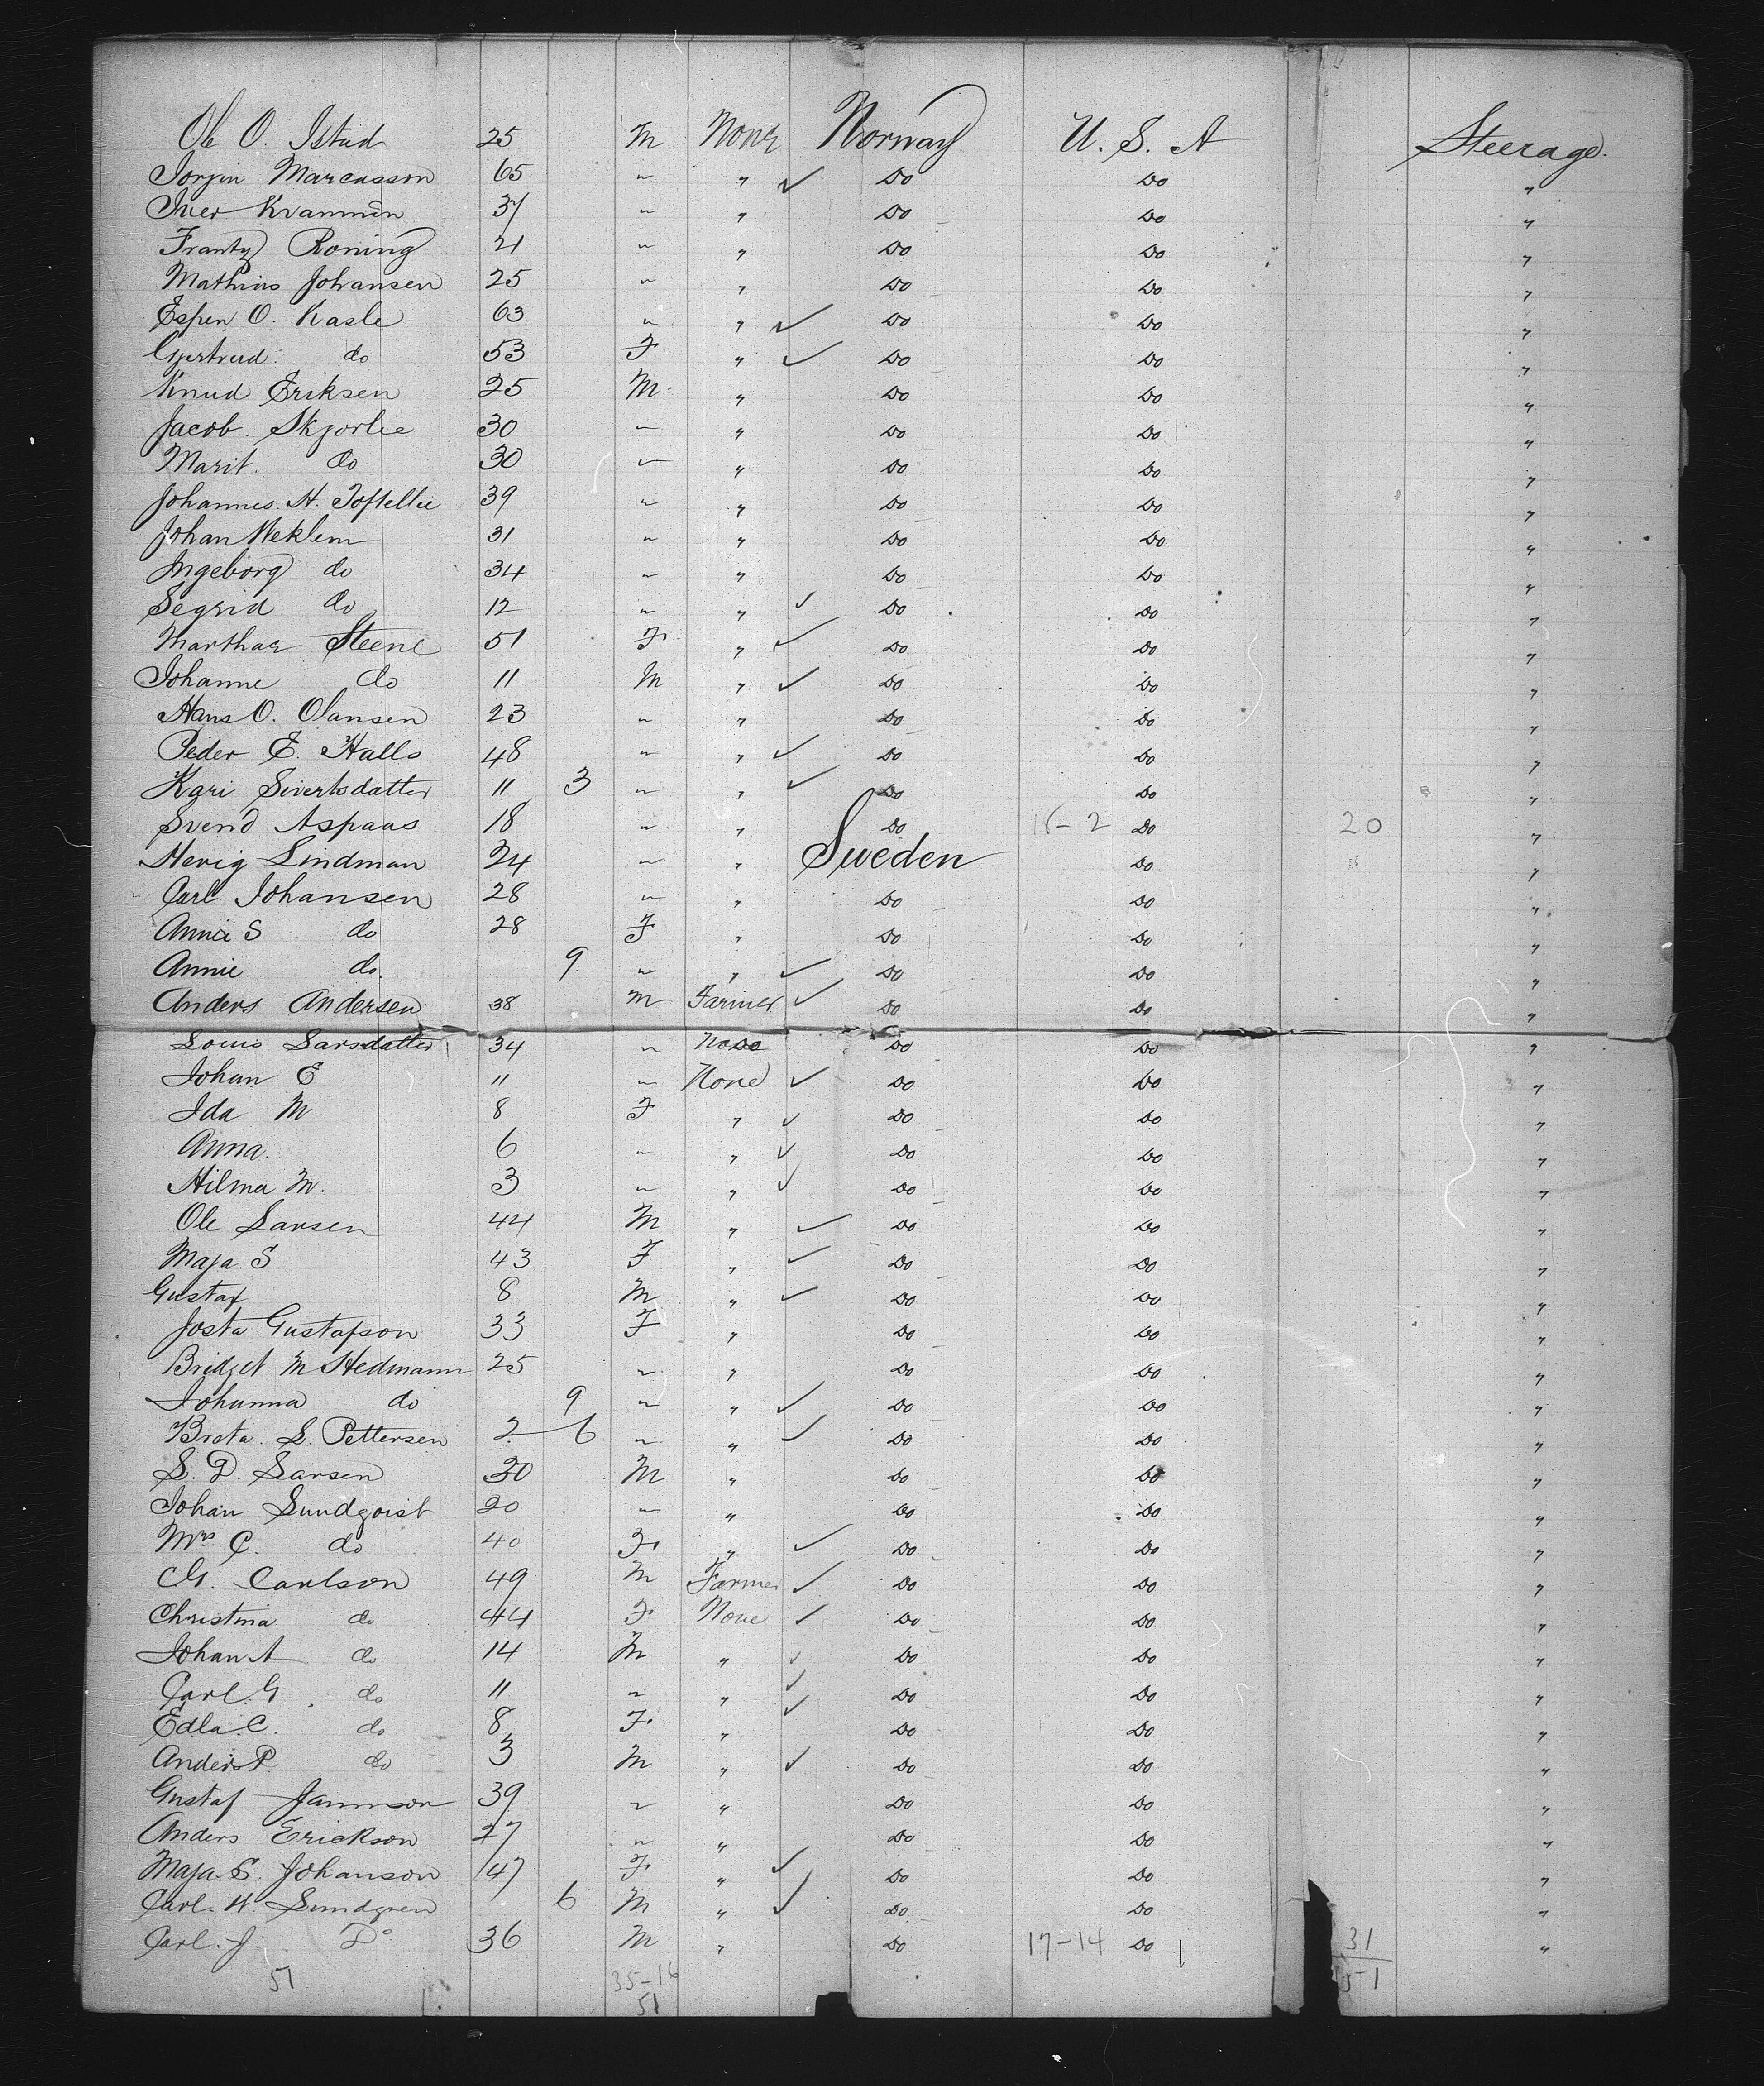 Ole O. Istad 25 M None Norway U. S. A Steerage.
Jorgin Marcusson 65 " " ✓ Do Do "
Iver Kvammen 37 " " Do Do "
Frantz Roning 21 " " Do Do "
Mathias Johansen 25 " " Do Do "
Espen O. Kasle 63 " " ✓ Do Do "
Gjertrud do 53 F " ✓ Do Do "
Knud Eriksen 25 M " Do Do "
Jacob. Skjorlie 30 " " Do Do "
Marit. do 30 " " Do Do "
Johannes. H. Toftellie 39 " " Do Do "
Johan Meklem 31 " " Do Do "
Ingeborg do 34 " " Do Do "
Segrid do 12 " " ✓ Do Do "
Marthae Steene 51 F " ✓ Do Do "
Johanne do 11 M " ✓ Do Do "
Hans O. Olansen 23 " " Do Do "
Peder E. Halls 48 " " ✓ Do Do "
Kari Sivertsdatter 11 3 " " ✓ Do Do "
Svend Aspaas 18 " " Do 18-2 Do 20 "
Hevig Lindman 24 " " Sweden Do "
Carl Johansen 28 " " Do Do "
Anna S do 28 F " Do Do "
Annie do. 9 " " ✓ Do Do "
Anders Andersen 38 M Farmer ✓ Do Do "
Louis Larsdatter 34 " None Do Do "
Johan E 11 " None ✓ Do Do "
Ida M 8 F " ✓ Do Do "
Anna. 6 " " ✓ Do Do "
Hilma M. 3 " " ✓ Do Do "
Ole Larsen 44 M " ✓ Do Do "
Maja S 43 F " ✓ Do Do "
Gustaf 8 M " ✓ Do Do "
Josta Gustafson 33 F " Do Do "
Bridget M Hedmann 25 " " Do Do "
Johanna do 9 " " ✓ Do Do "
Breta. L. Pettersen 2 6 " " ✓ Do Do "
L. P. Larsen 30 M " Do Do "
Johan Lundqvist 20 " " Do Do "
Mrs C. do 40 F " ✓ Do Do "
G. Carlson 49 M Farmer ✓ Do Do "
Christina do 44 F None ✓ Do Do "
Johan A do 14 M " ✓ Do Do "
Carl. G. do 11 " " ✓ Do Do "
Edla. C. do 8 F " ✓ Do Do "
Anders P. do 3 M " ✓ Do Do "
Gustaf Jannson 39 " " Do Do "
Anders Erickson 27 " " Do Do "
Maja S. Johanson 47 F " ✓ Do Do "
Carl. W. Sundgren 6 M " ✓ Do Do "
Carl. J. Do 36 M " Do 17-14 Do 31 "
51 35-16 51
51